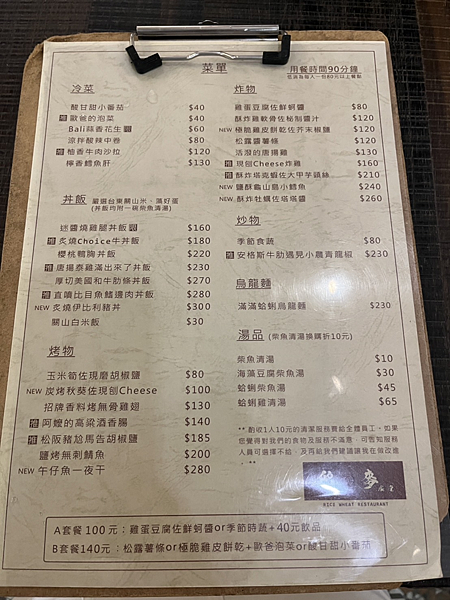 菜單
用餐時間90分鐘
低消為每人一份80元以上餐點
冷菜
酸甘甜小番茄 $40
推 歐爸的泡菜 $40
Bali蒜香花生 $60
涼拌酸辣中卷 $80
推 柚香牛肉沙拉 $120
檸香鱈魚肝 $130
丼飯 嚴選台東關山米、藻好蛋
(丼飯均附一碗柴魚清湯)
迷醬燒雞腿丼飯 $160
推 炙燒Choice牛丼飯 $180
櫻桃鴨胸丼飯 $220
推 唐揚泰雞滿出來了丼飯 $230
厚切美國和牛肋條丼飯 $270
推 直噴比目魚鰭邊肉丼飯 $280
NEW 炙燒伊比利豬丼 $300
關山白米飯 $30
烤物
玉米筍佐現磨胡椒鹽 $80
NEW 炭烤秋葵佐現刨Cheese $100
招牌香料烤無骨雞翅 $130
推 阿嬤的高粱酒香腸 $140
推 松阪豬尬馬告胡椒鹽 $185
鹽烤無刺鯖魚 $200
NEW 午仔魚一夜干 $280
炸物
雞蛋豆腐佐鮮蚵醬 $80
酥炸雞軟骨佐秘制醬汁 $210
NEW 極脆雞皮餅乾佐芥末椒鹽 $120
松露薯條 $120
活潑的唐揚雞 $130
推 現刨Cheese炸雞 $160
推 酥炸塔克蝦佐大甲芋頭絲 $210
NEW 鹽酥龜山島小鱈魚 $240
NEW 酥炸牡蠣佐塔塔醬 $260
炒物
季節食蔬 $80
推 安格斯牛肋遇見小農青龍椒 $230
烏龍麵
滿滿蛤蜊烏龍麵 $230
湯品 (柴魚清湯換購折10元)
柴魚清湯 $10
海藻豆腐柴魚湯 $30
蛤蜊柴魚湯 $45
蛤蜊雞清湯 $65
** 酌收1人10元的清潔服務費給全體員工。如果
您覺得對我們的食物及服務不滿意，可告知服務
人員可選擇不給。及再給我們建議讓我在做改進
。**
麥
RICE WHEAT RESTAURANT
A套餐 100元：雞蛋豆腐佐鮮蚵醬or季節時蔬+40元飲品
B套餐140元：松露薯條or極脆雞皮餅乾+歐爸泡菜or酸甘甜小番茄